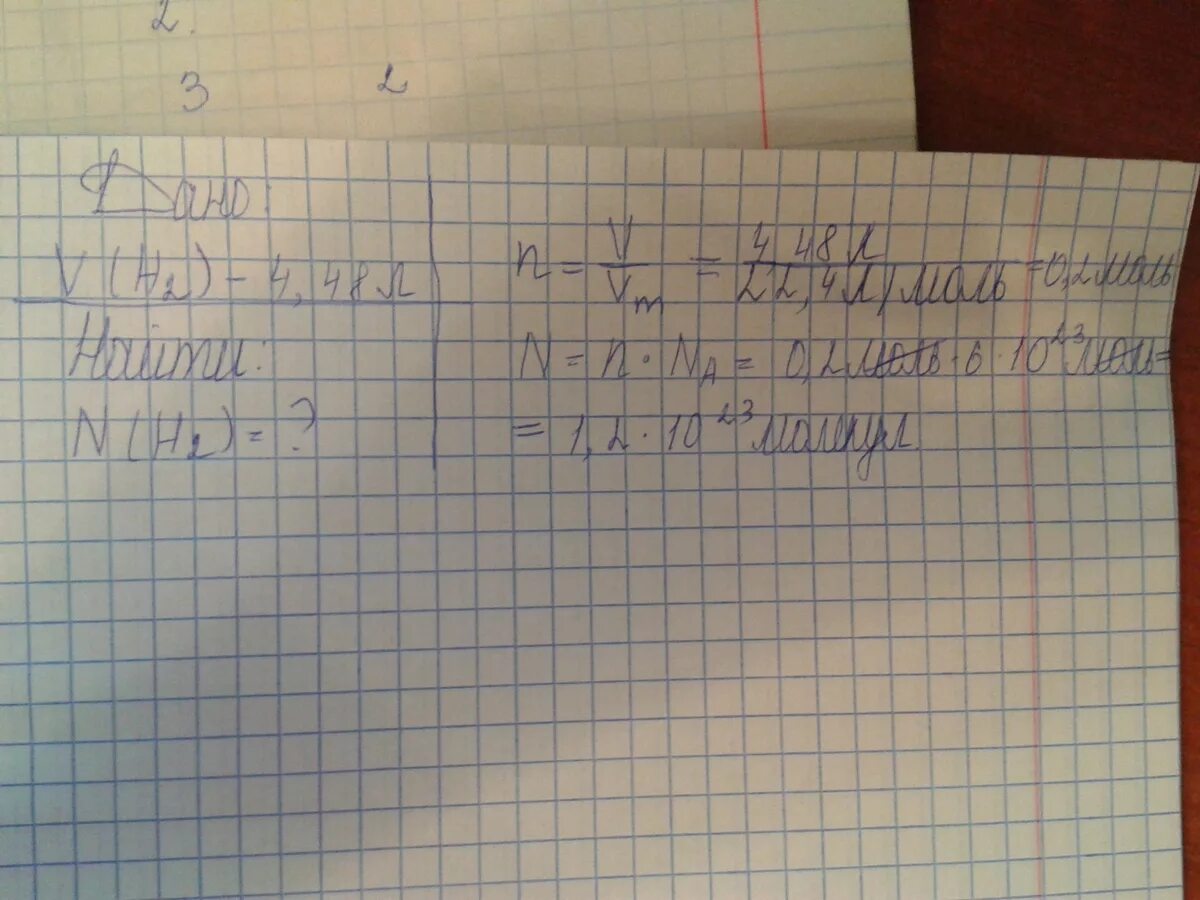 2.
3 2
Дано
V (H₂) - 4,48 л
Найти:
N (H₂) = ?
n = V/Vm = 4,48 л / 22,4 л/моль = 0,2 моль
N = n · NA = 0,2 моль · 6 · 10²³ моль =
= 1,2 · 10²³ молекул